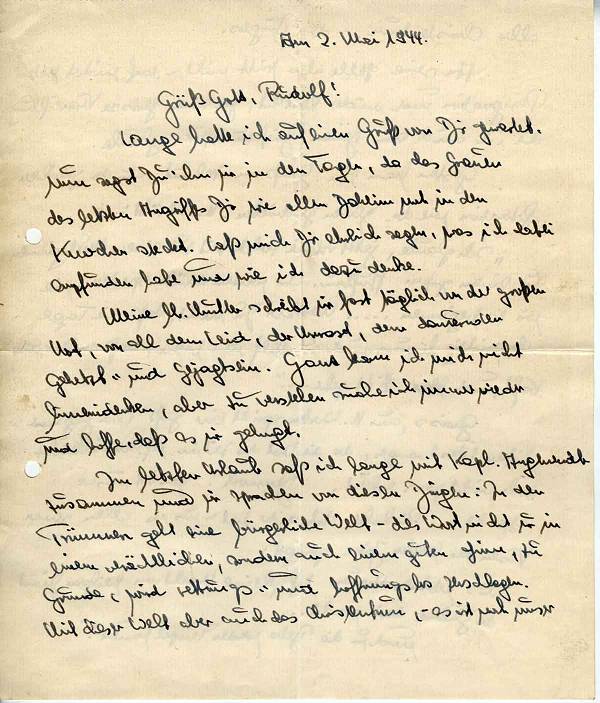 Am 2. Mai 1944.
Grüß Gott, Rudolf!
Lange hatte ich auf einen Gruß von Dir gewartet.
Nun sagst Du ihn mir in den Tagen, da das Grauen
des letzten Angriffs Dir wie allen Daheim noch in den
Knochen steckt. Laß mich Dir ehrlich sagen, was ich dabei
empfunden habe und wie ich dazu denke.
Meine lb. Mutter schreibt mir fast täglich von der großen
Not, von all dem Leid, der Unrast, dem dauernden
Gehetzt- und Gejagtsein. Ganz kann ich mich nicht
hineindenken, aber zu verstehen suche ich immer wieder
und hoffe, daß es mir gelingt.
Im letzten Urlaub saß ich lange mit Kapl.
zusammen und wir sprachen von diesen Dingen: In den
Trümmern geht eine bürgerliche Welt – dies Wort nicht nur in
einem verächtlichen, sondern auch einem guten Sinne, zu
Grunde, wird rettungs- und hoffnungslos zerschlagen.
Mit dieser Welt aber auch das Christentum, – es ist noch unser